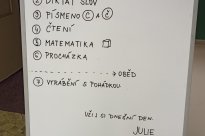 ② DIKTÁT SLOV
③ PÍSMENO Č A Ž
④ ČTENÍ
⑤ MATEMATIKA
⑥ PROCHÁZKA
OBĚD
⑦ VYRÁBĚNÍ S POHÁDKOU
UŽIJ SI DNEŠNÍ DEN.
JULIE